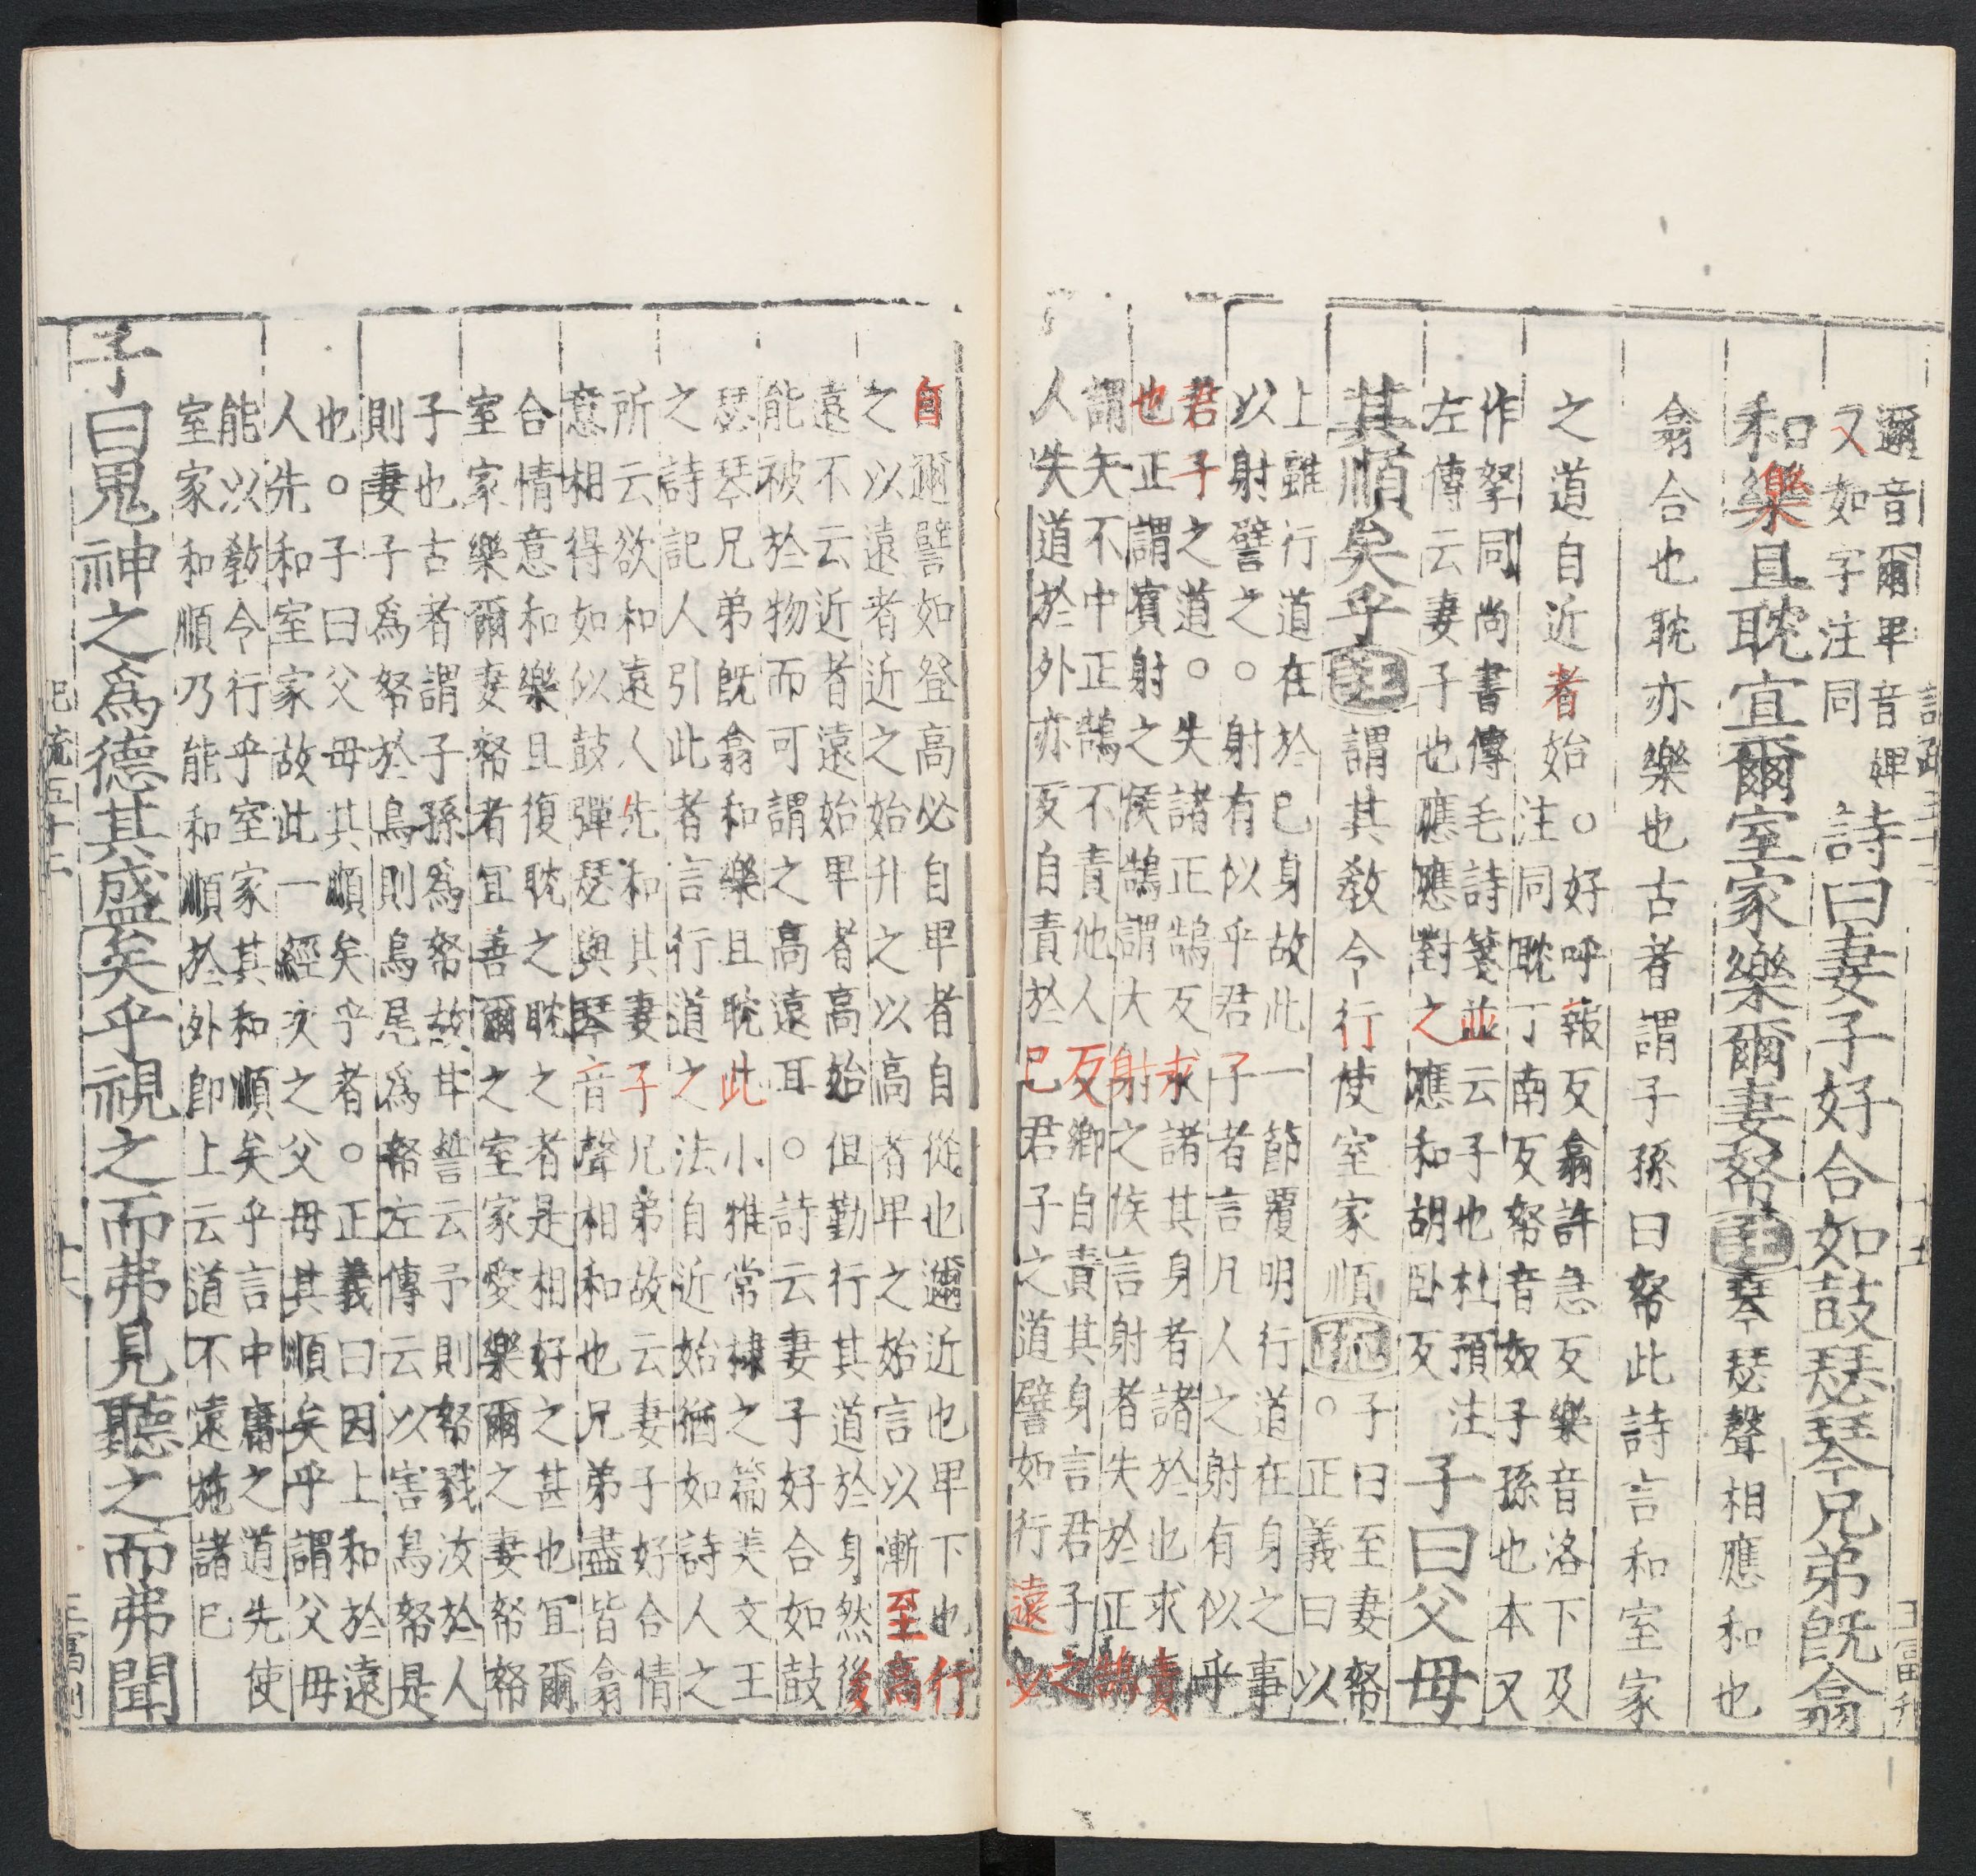 邇音爾卑音婢
又如字注同
詩曰妻子好合如鼓瑟琴兄弟旣翕
和樂且耽宜爾室家樂爾妻帑註琴瑟聲相應和也
翕合也耽亦樂也古者謂子孫曰帑此詩言和室家
之道自近者始○
好呼報反翕許急反樂音洛下及
注同耽丁南反帑音奴子孫也本又
作孥同尚書傳毛詩箋並云子也杜預注
左傳云妻子也應應對之應和胡卧反
子曰父母
其順矣乎註謂其敎令行使室家順疏
子曰至妻帑
○正義曰以
上雖行道在於己身故此一節覆明行道在身之事
以射譬之○射有似乎君子者言凡人之射有似乎
君子之道○失諸正鵠反求諸其身者諸於也求責
也正謂賓射之侯鵠謂大射之侯言射者失於正鵠
謂矢不中正鵠不責他人反鄉自責其身言君子之
人失道於外亦反自責於己君子之道譬如行遠必
自邇譬如登高必自卑者自從也邇近也卑下也行
之以遠者近之始升之以高者卑之始言以漸至高
遠不云近者遠始卑者高始但勤行其道於身然後
能被於物而可謂之高遠耳○詩云妻子好合如鼓
瑟琴兄弟旣翕和樂且耽此小雅常棣之篇美文王
之詩記人引此者言行道之法自近始猶如詩人之
所云欲和遠人先和其妻子兄弟故云妻子好合情
意相得如似鼓彈瑟與琴音聲相和也兄弟盡皆翕
合情意和樂且復耽之耽之者是相好之甚也宜爾
室家樂爾妻帑者宜善爾之室家愛樂爾之妻帑帑
子也古者謂子孫爲帑故甘誓云予則帑戮汝於人
則妻子爲帑於鳥則鳥尾爲帑左傳云以害鳥帑是
也○子曰父母其順矣乎者○正義曰因上和於遠
人先和室家故此一經次之父母其順矣乎謂父母
能以敎令行乎室家其和順矣乎言中庸之道先使
室家和順乃能和順於外卽上云道不遠施諸己
子曰鬼神之爲德其盛矣乎視之而弗見聽之而弗聞
記疏五十二
十六
王富刻